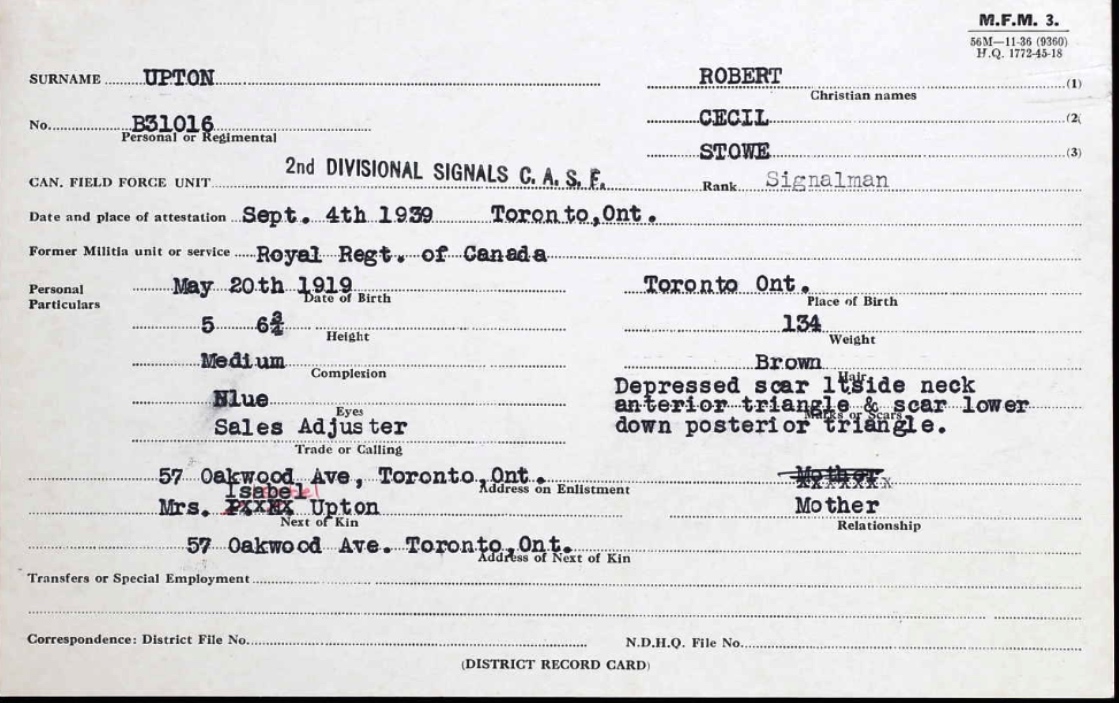 M.F.M. 3.
56M—11-36 (9360)
H.Q. 1772-45-18
SURNAME UPTON ROBERT (1)
Christian names
No. B31016 CECIL (2(
Personal or Regimental
STOWE (3)
CAN. FIELD FORCE UNIT 2nd DIVISIONAL SIGNALS C. A. S. F. Rank Signalman
Date and place of attestation Sept. 4th 1939 Toronto,Ont.
Former Militia unit or service Royal Regt. of Canada
Personal Particulars May 20th 1919 Toronto Ont.
Date of Birth Place of Birth
5 6¾ 134
Height Weight
Medium Brown
Complexion Hair
Blue Depressed scar ltside neck
Eyes anterior triangle & scar lower
Marks or Scars
Sales Adjuster down posterior triangle.
Trade or Calling
57 Oakwood Ave, Toronto,Ont. Mother
Address on Enlistment
Isabel
Mrs. Upton Mother
Next of Kin Relationship
57 Oakwood Ave. Toronto,Ont.
Address of Next of Kin
Transfers or Special Employment
Correspondence: District File No. N.D.H.Q. File No.
(DISTRICT RECORD CARD)